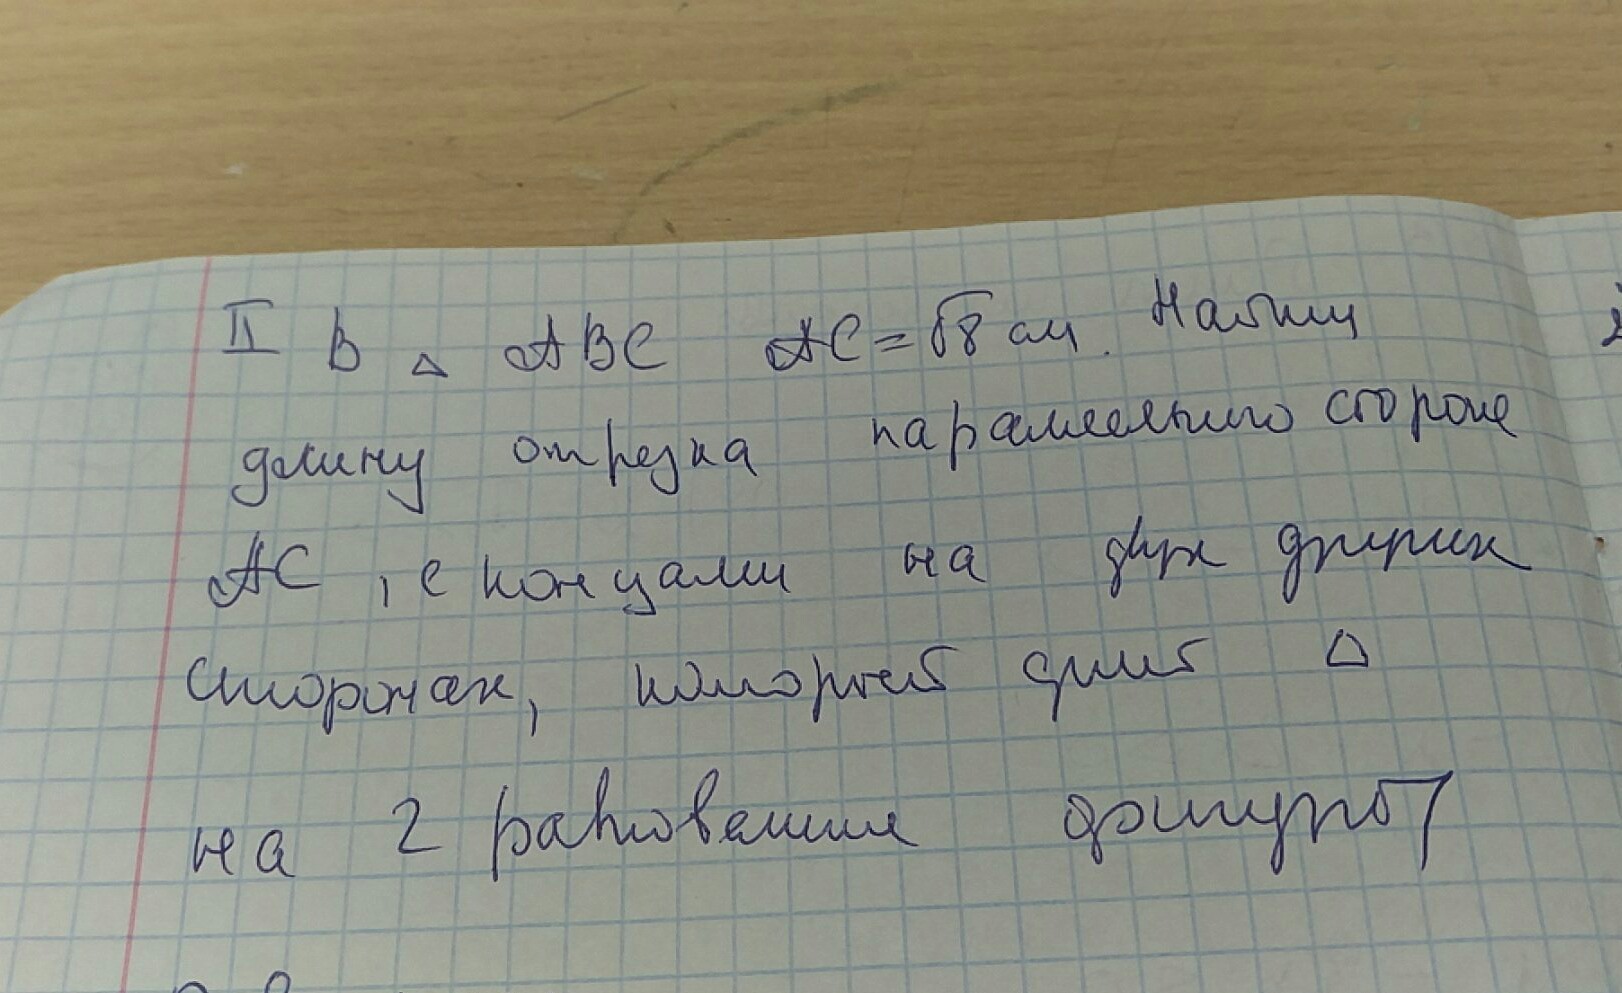 II В △ ABC AC = √8 см. Найти
длину отрезка параллельного стороне
AC, с концами на двух других
сторонах, который делит △
на 2 равновеликие фигуры